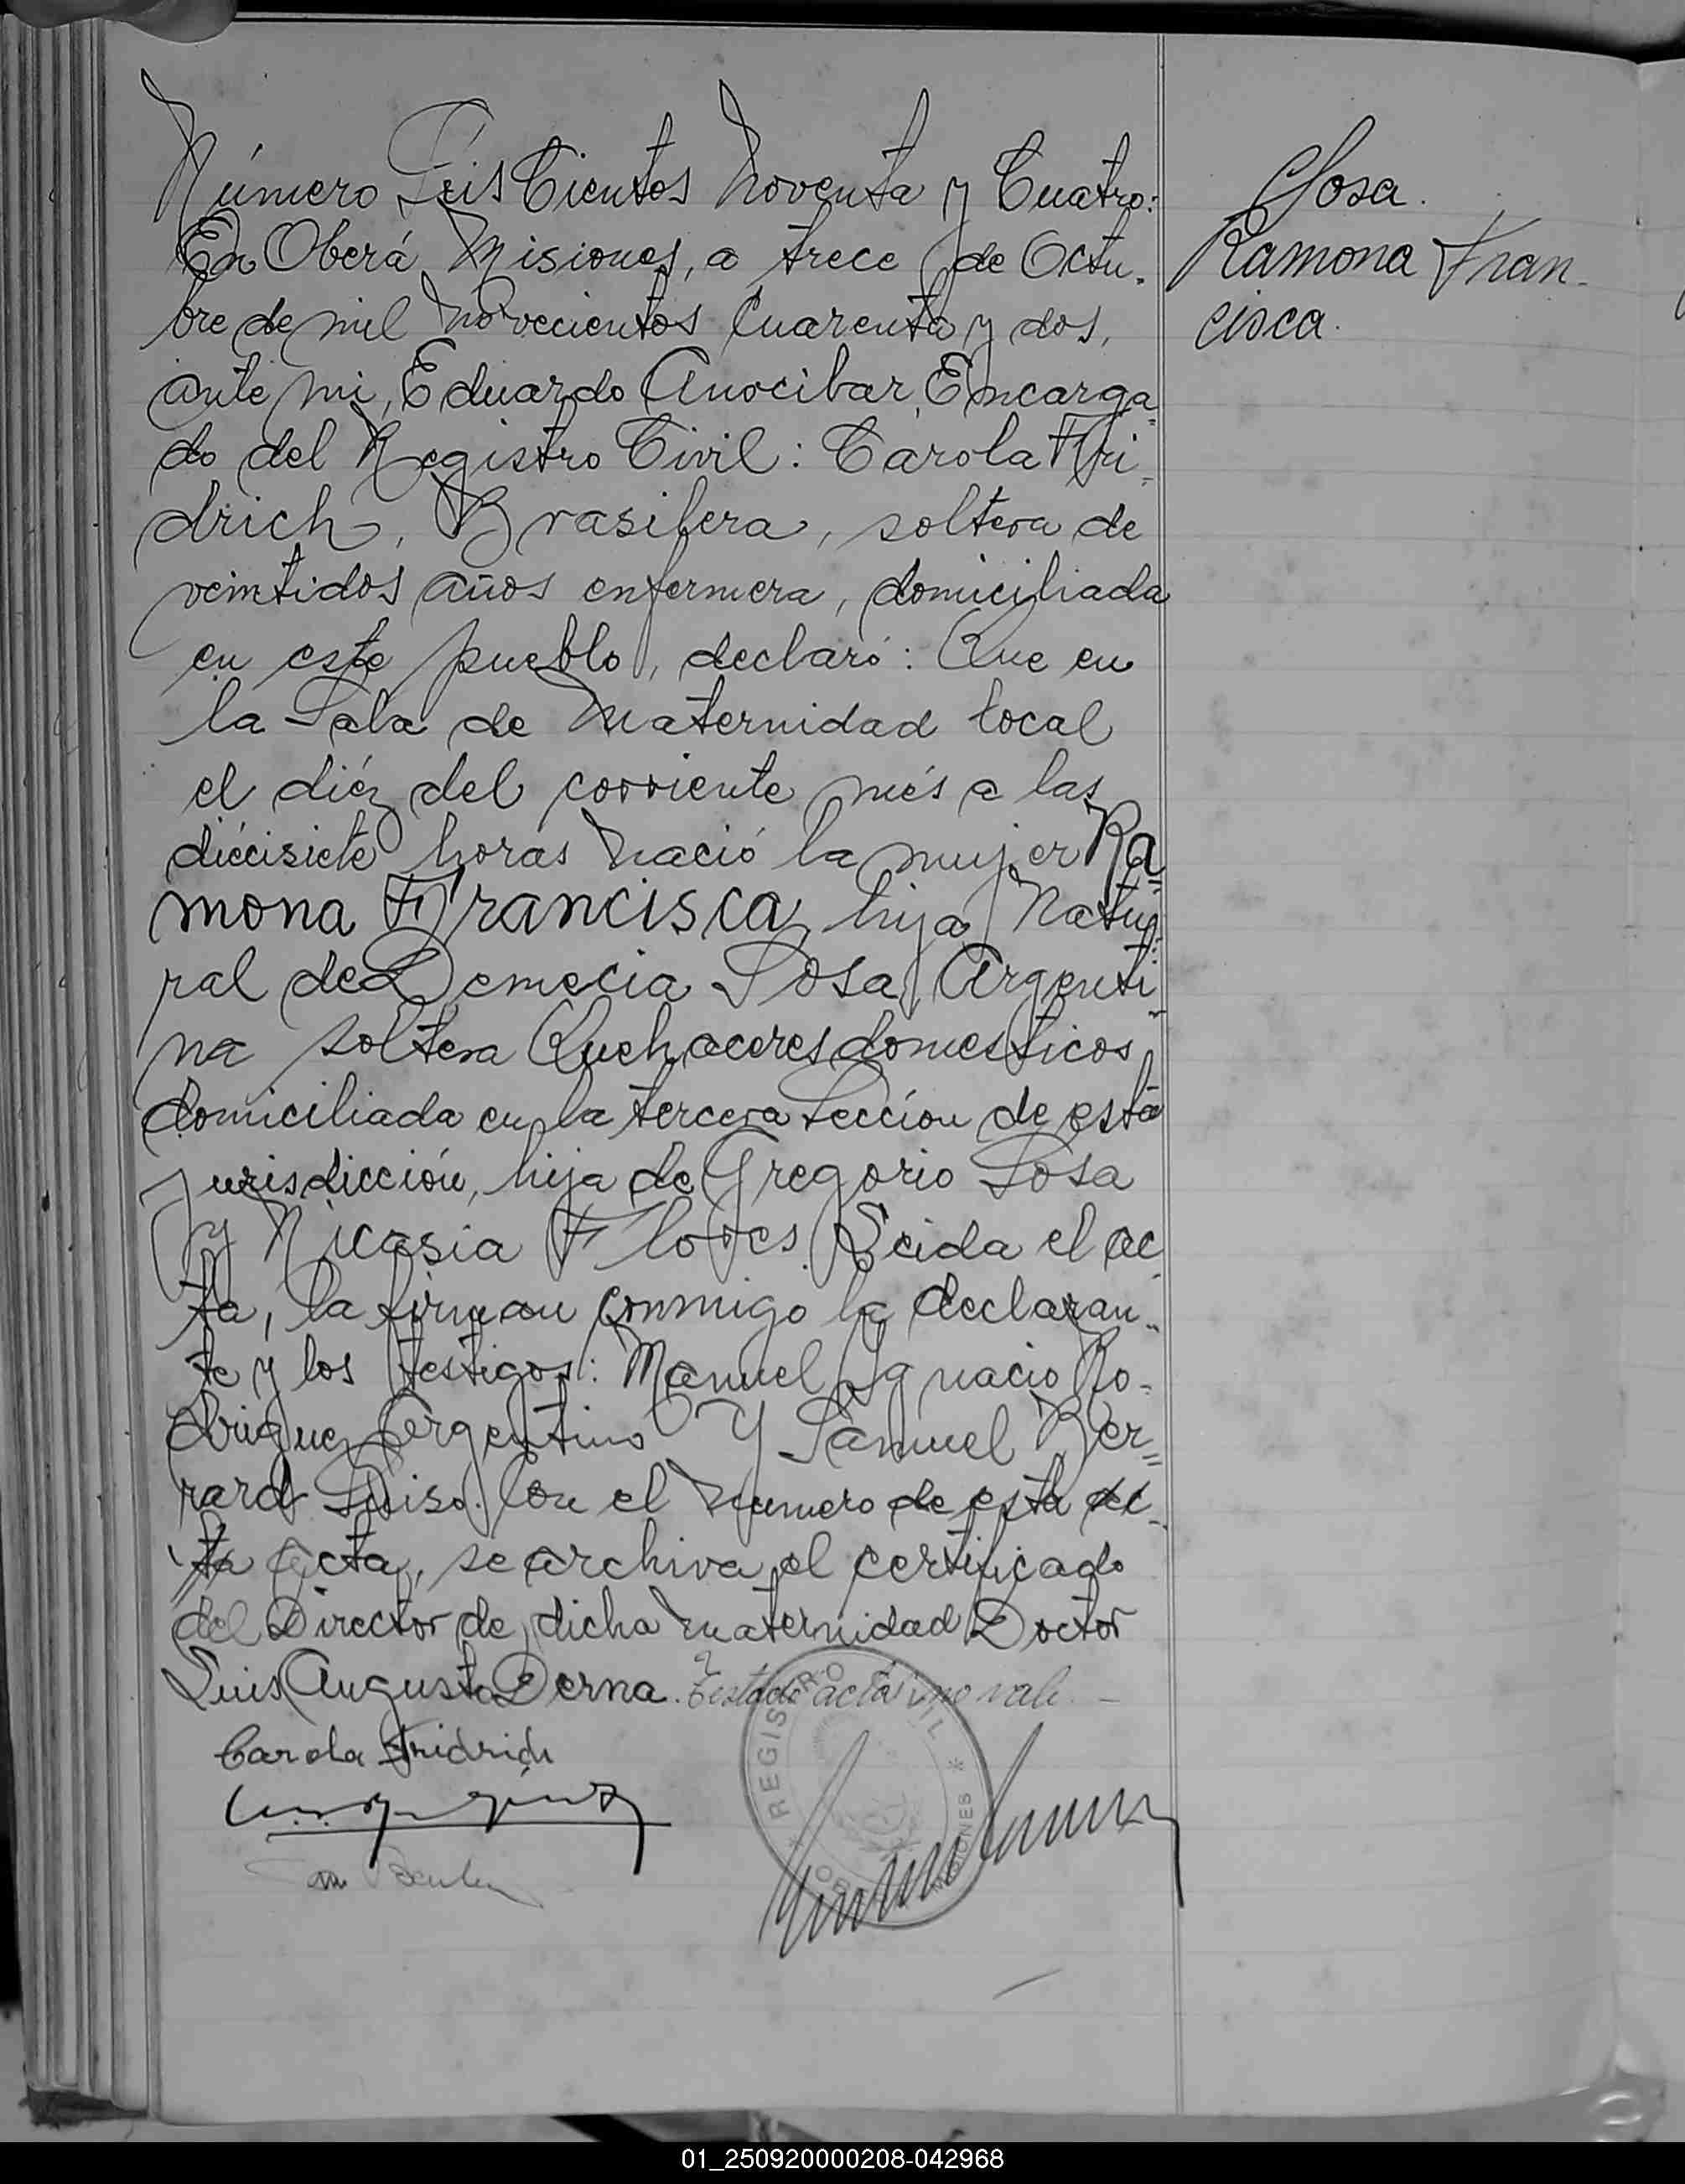 Número Seis Cientos Noventa y Cuatro:
En Oberá Misiones, a trece de Octu-
bre de mil novecientos Cuarenta y dos,
ante mi, Eduardo Anocibar, Encarga-
do del Registro Civil: Carola Fri-
drich, Brasilera, soltera de
veintidos años enfermera, domiciliada
en este pueblo, declaró: Que en
la Sala de Maternidad local
el diéz del corriente més a las
diécisiete horas nació la mujer Ra=
mona Francisca, hija Natu=
ral de Demecia Sosa, Argenti-
na soltera Quehaceres domesticos
domiciliada en la tercera Sección de esta
jurisdicción, hija de Gregorio Sosa
y Nicasia Flores. Leida el ac-
ta, la firman conmigo la declaran-
te y los testigos: Manuel Ignacio Ro-
driguez Argentino y Samuel Ber=
rard Suiso. Con el numero de esta ac-
ta acta, se archiva el certificado
del Director de dicha maternidad Doctor
Luis Augusto Derna. Testado acta: no vale. -
Carola Fridrich
REGISTRO CIVIL
* OBERÁ MISIONES *
Sosa.
Ramona Fran-
cisca.
01_250920000208-042968